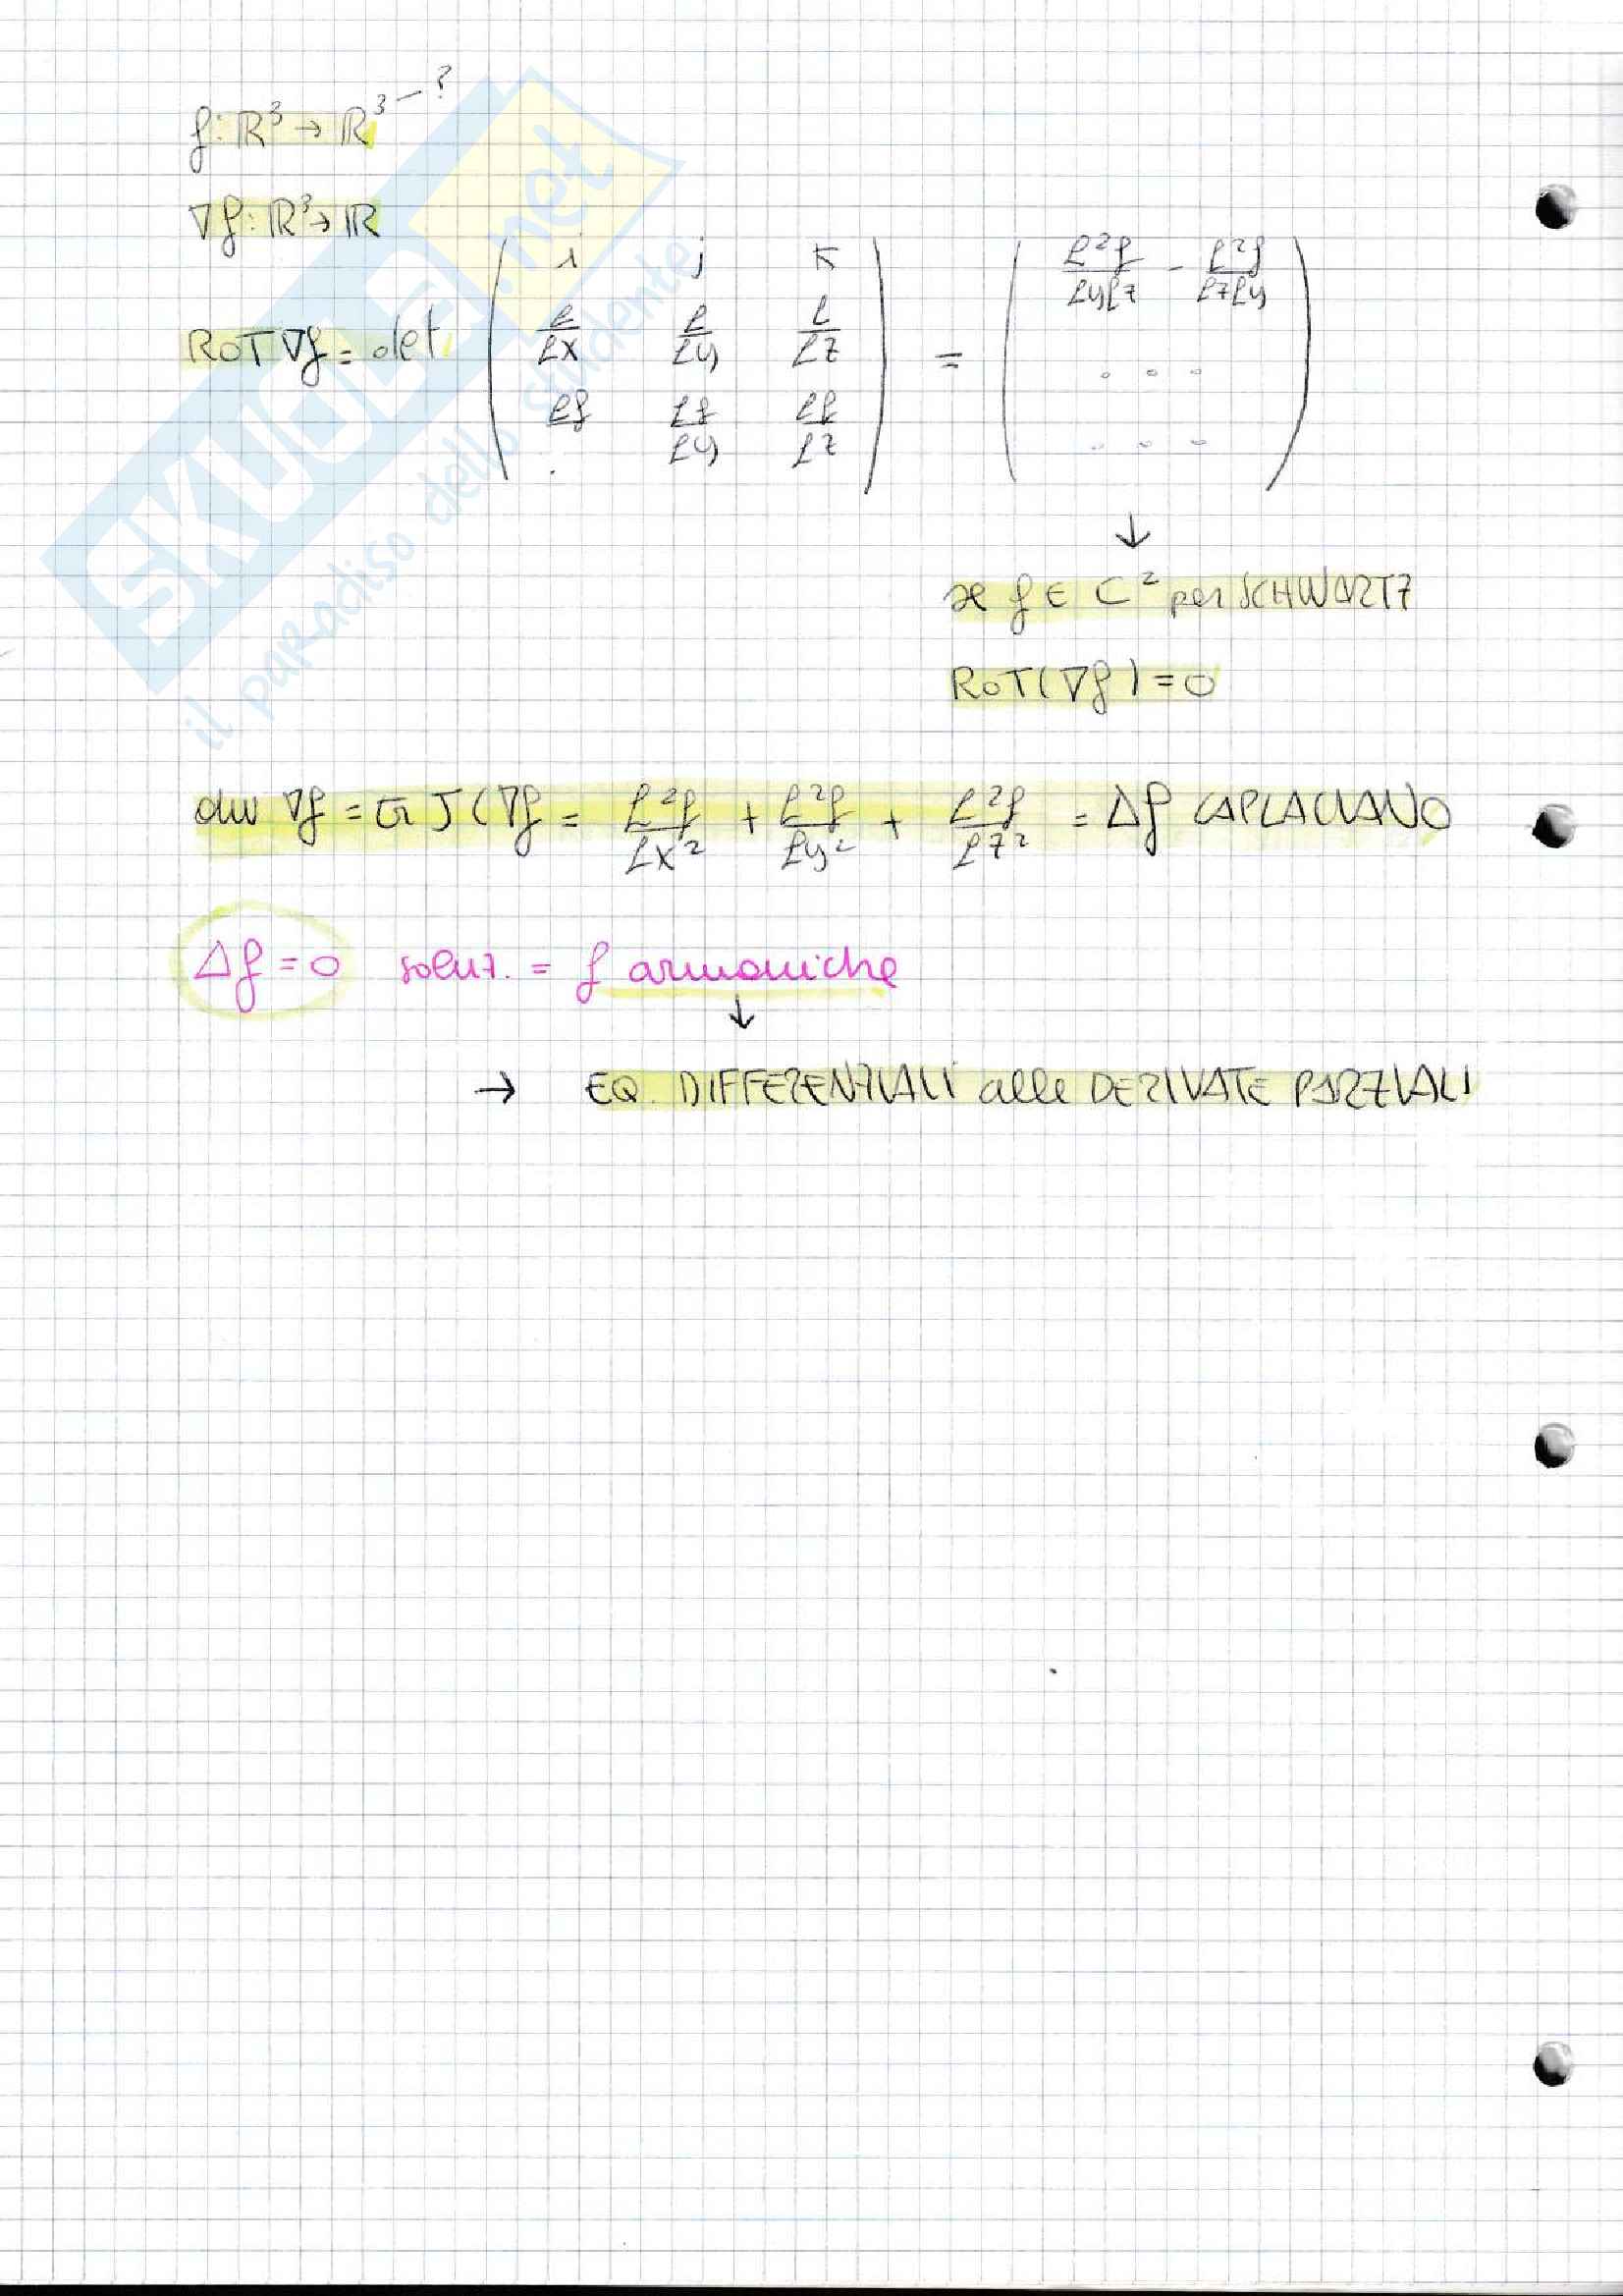 f: ℝ³ → ℝ³ — ?
∇f: ℝ³ → ℝ
i j k
∂²f/∂y∂z - ∂²f/∂z∂y
ROT ∇f = det ∂/∂x ∂/∂y ∂/∂z = . . .
∂f ∂f/∂y ∂f/∂z . . .
↓
se f ∈ C² per SCHWARTZ
ROT(∇f) = 0
div ∇f = tr J(∇f = ∂²f/∂x² + ∂²f/∂y² + ∂²f/∂z² = Δf LAPLACIANO
Δf = 0 soluz. = f armoniche
↓
→ EQ. DIFFERENZIALI alle DERIVATE PARZIALI
SKUOLA.net
il paradiso dello studente